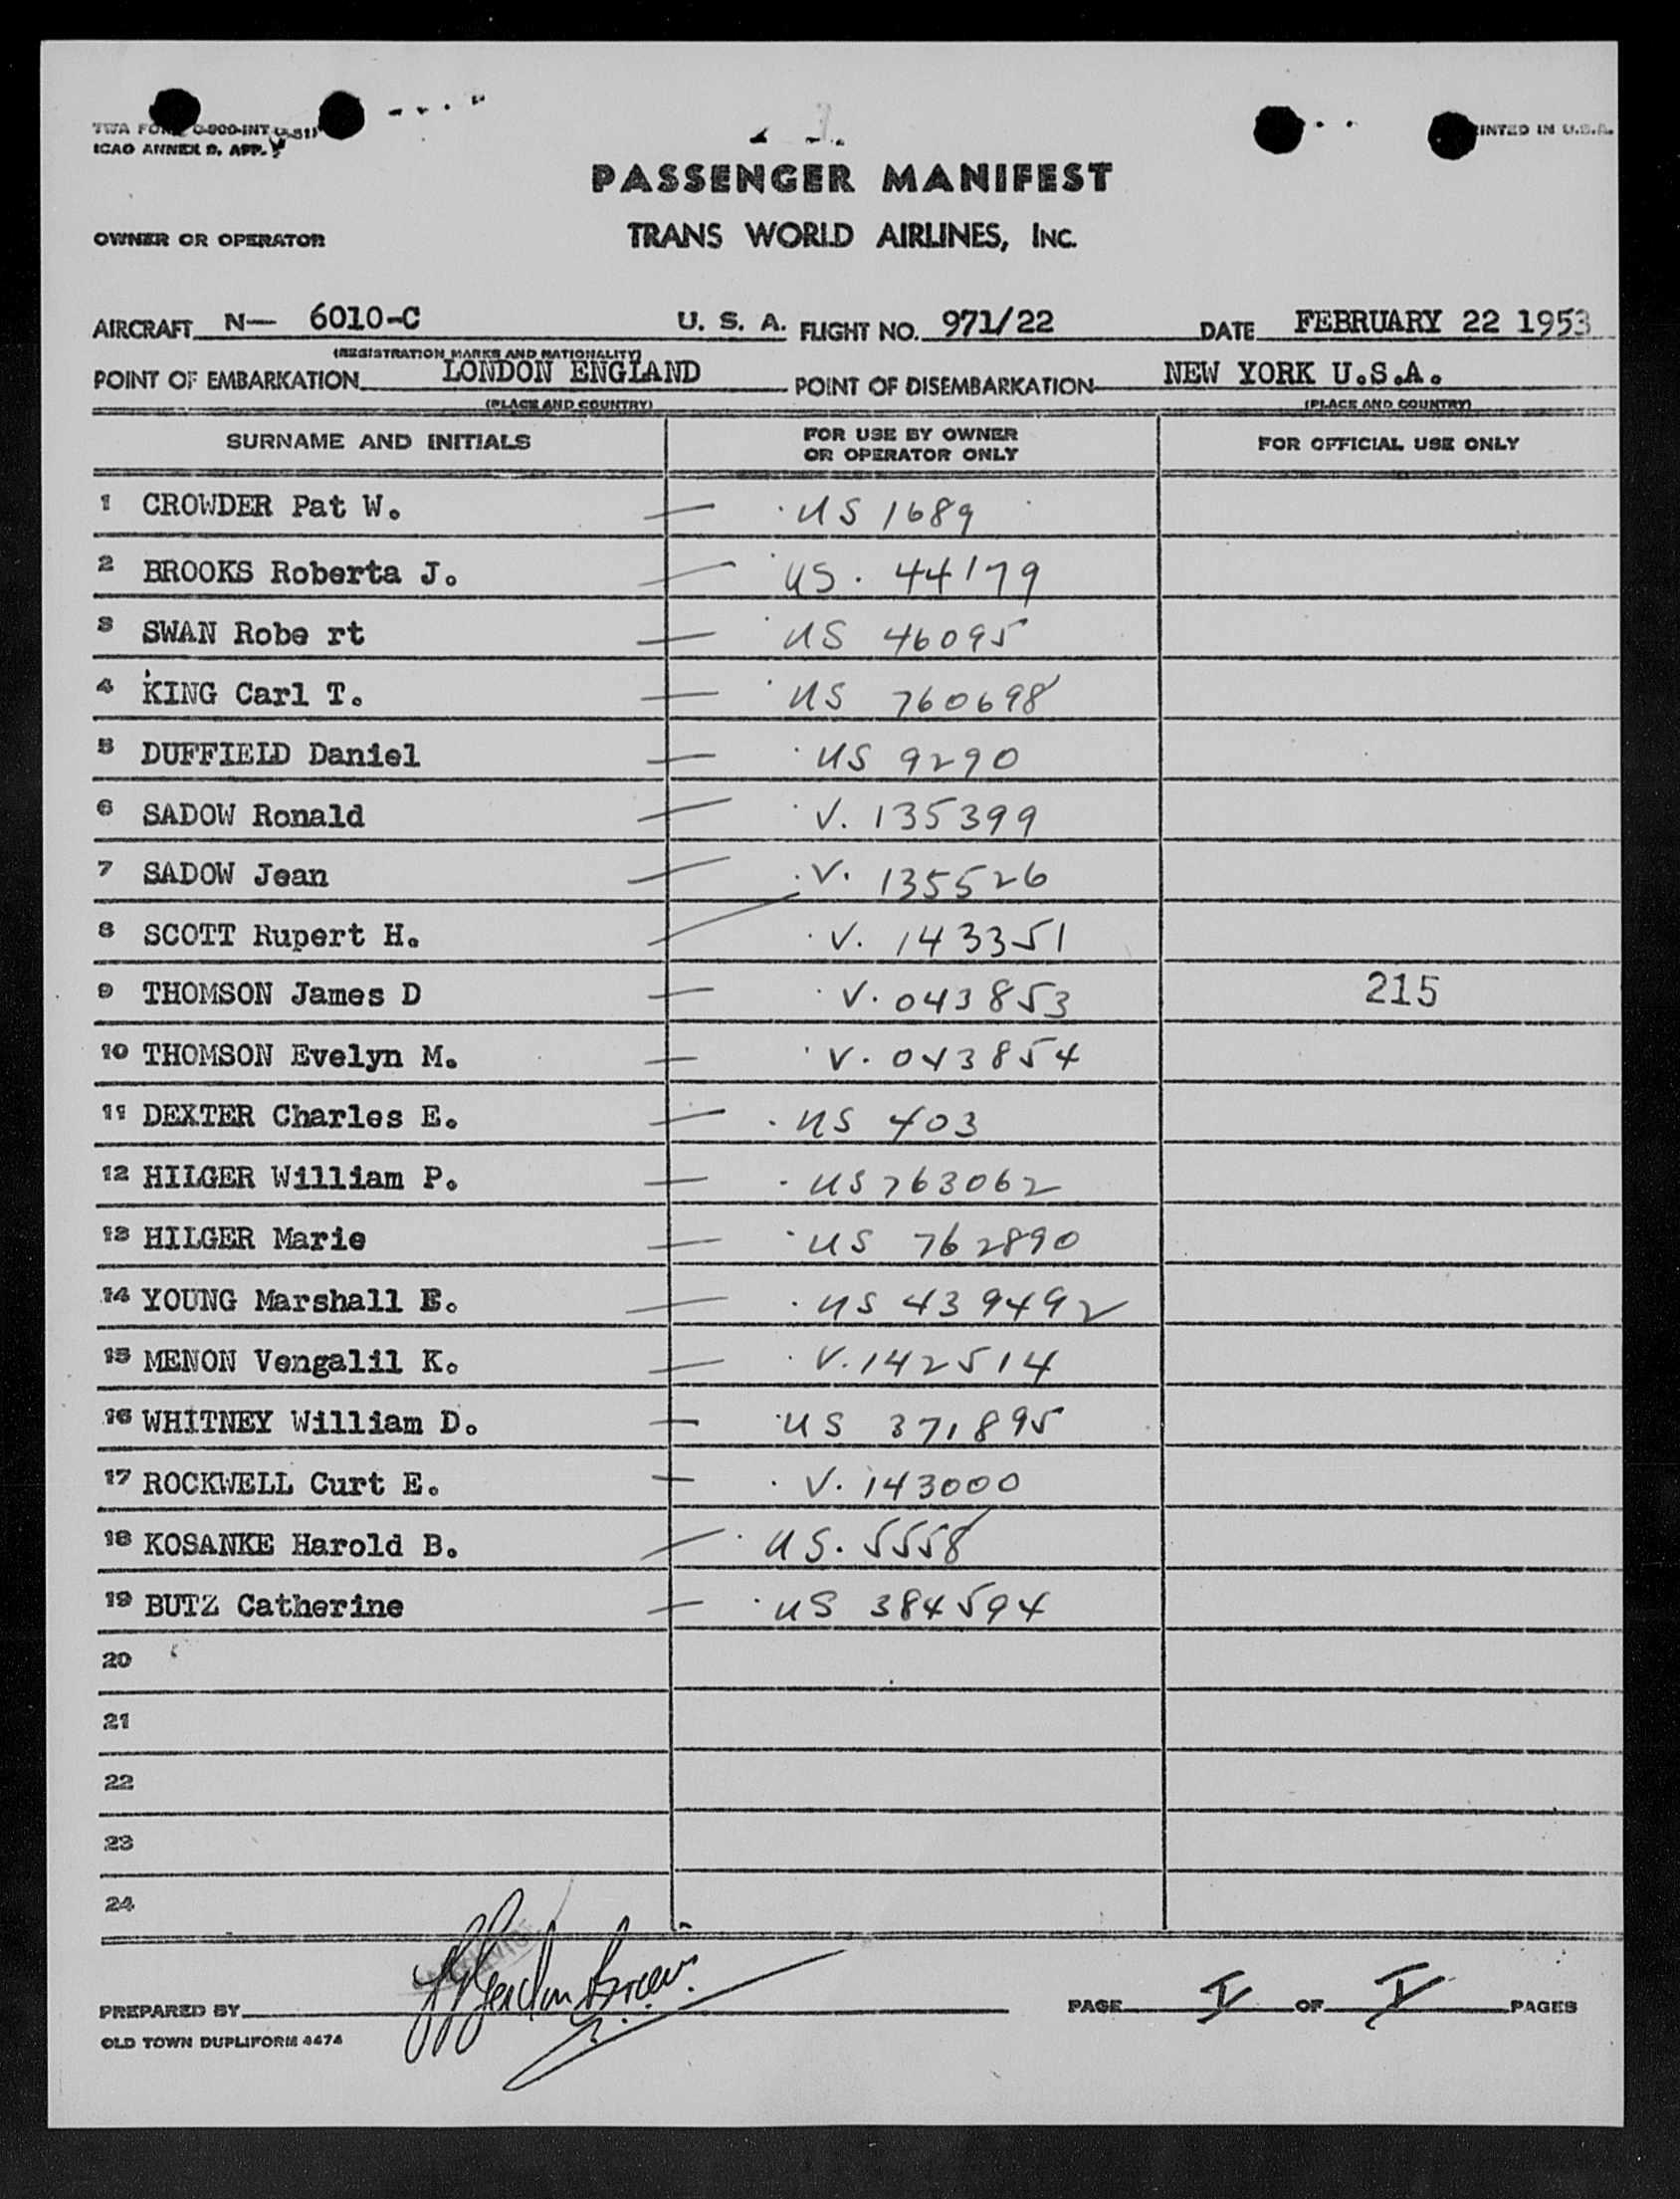 TWA FORM O-800-INT (5-51)
ICAO ANNEX 9, APP.
PRINTED IN U.S.A.
PASSENGER MANIFEST
OWNER OR OPERATOR TRANS WORLD AIRLINES, INC.
AIRCRAFT N— 6010-C U. S. A. FLIGHT NO. 971/22 DATE FEBRUARY 22 1953
(REGISTRATION MARKS AND NATIONALITY)
POINT OF EMBARKATION LONDON ENGLAND POINT OF DISEMBARKATION NEW YORK U.S.A.
(PLACE AND COUNTRY) (PLACE AND COUNTRY)
SURNAME AND INITIALS FOR USE BY OWNER OR OPERATOR ONLY FOR OFFICIAL USE ONLY
1 CROWDER Pat W. — US 1689
2 BROOKS Roberta J. — US. 44179
3 SWAN Robe rt — US 46095
4 KING Carl T. — US 760698
5 DUFFIELD Daniel — US 9290
6 SADOW Ronald — V. 135399
7 SADOW Jean — V. 135526
8 SCOTT Rupert H. — V. 143351
9 THOMSON James D — V. 043853 215
10 THOMSON Evelyn M. — V. 043854
11 DEXTER Charles E. — US 403
12 HILGER William P. — US 763062
13 HILGER Marie — US 762890
14 YOUNG Marshall E. — US 439492
15 MENON Vengalil K. — V. 142514
16 WHITNEY William D. — US 371895
17 ROCKWELL Curt E. — V. 143000
18 KOSANKE Harold B. — US. 5558
19 BUTZ Catherine — US 384594
20
21
22
23
24
PREPARED BY PAGE I OF I PAGES
OLD TOWN DUPLIFORM 4474